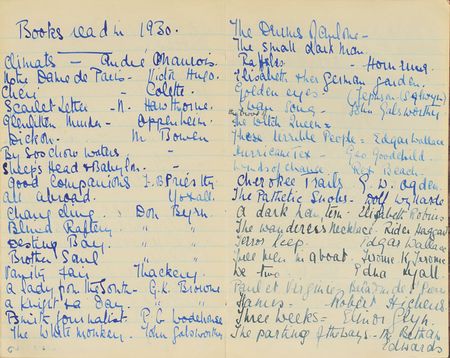 Books read in 1930.
Climats - André Maurois.
Notre Dame de Paris - Victor Hugo.
Cheri - Colette.
Scarlet Letter - N. Hawthorne.
Glenlitten Murder - Oppenheim.
Dickon - M. Bowen
By Soochow waters -
Sheep's Head & Babylon - "
Good Companions J.B Priestley.
All abroad. Yoxall.
Changeling. Don Byrn.
Blind Raftery " "
Destiny Bay. " "
Brother Saul " "
Vanity Fair Thackeray.
A lady from the South - G.K. Browne
A Knight for a Day. " "
Psmith journalist - P.G. Wodehouse
The White Monkey. John Galsworthy
The Drums of
The small dark man.
Raffles - Hornung.
Elizabeth & her German garden.
Golden eyes -
Swan Song - John Galsworthy
The White Queen =
These Terrible People = Edgar Wallace
Hurricane Tex - Geo Goodchild.
Winds of chance - Rex Beach.
Cherokee Trails G. W. Ogden.
The Pathetic Snobs - Dolf Wyllarde
A dark lantern. Elizabeth Robins
The wanderers necklace. Rider Haggard
Terror Keep. Edgar Wallace
Three men in a boat. Jerome K. Jerome
We two. Edna Lyall.
Paul et Virginie.
Flames - Robert Hichens.
Three weeks = Elinor Glyn.
The parting of the ways - M. Betham
Edwards